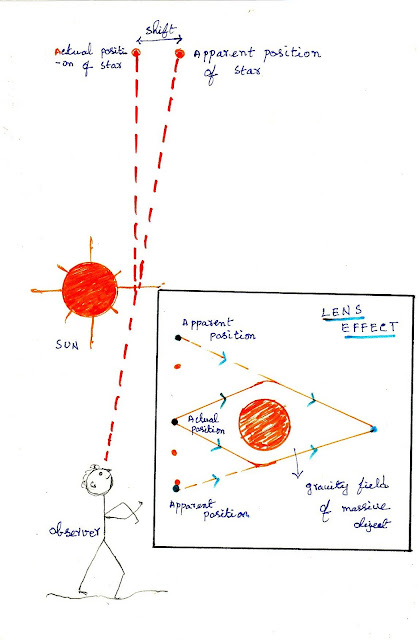 shift
Actual positi
-on of star
Apparent position
of star
SUN
observer
LENS
EFFECT
Apparent
position
Actual
position
Apparent
position
gravity field
of massive
object